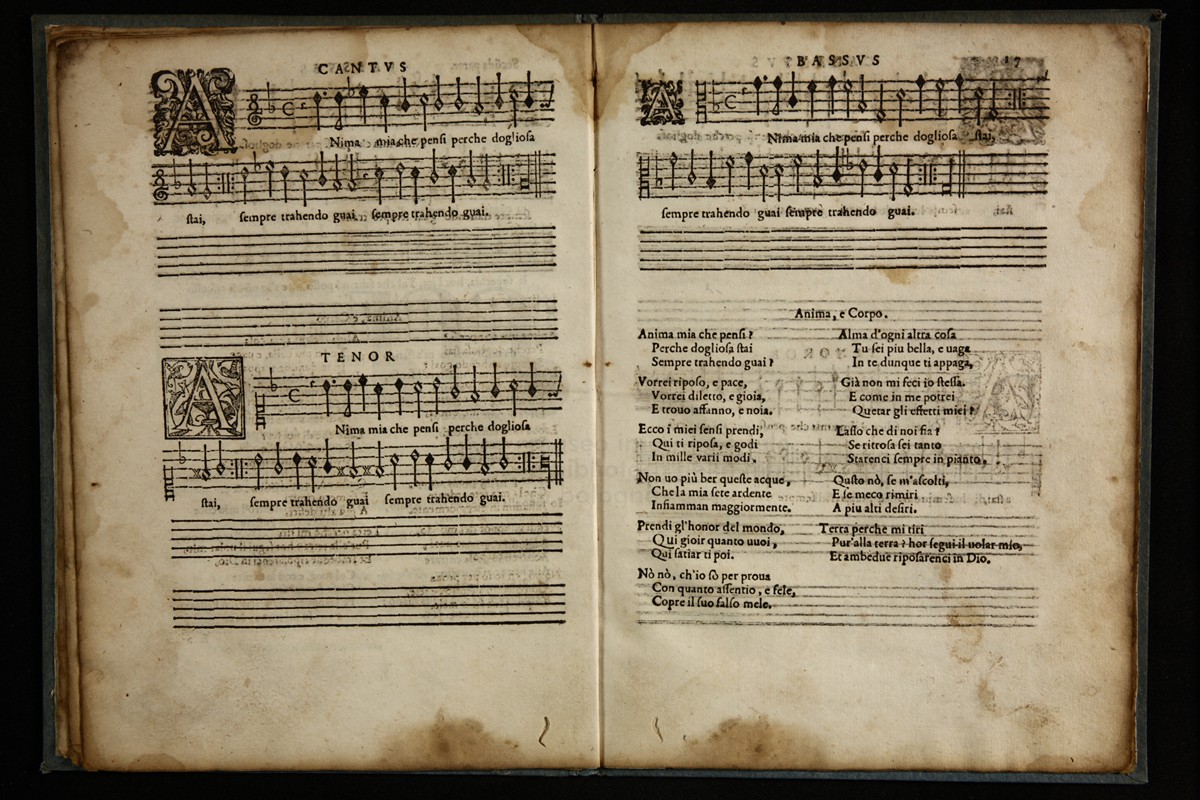 CANTVS
A
Nima mia che pensi perche dogliosa
stai, sempre trahendo guai. sempre trahendo guai.
TENOR
A
Nima mia che pensi perche dogliosa
stai, sempre trahendo guai sempre trahendo guai.
BASSVS 17
A
Nima mia che pensi perche dogliosa stai,
sempre trahendo guai sempre trahendo guai.
Anima, e Corpo.
Anima mia che pensi?
Perche dogliosa stai
Sempre trahendo guai?
Vorrei riposo, e pace,
Vorrei diletto, e gioia,
E trouo affanno, e noia.
Ecco i miei sensi prendi,
Qui ti riposa, e godi
In mille varii modi.
Non uo più ber queste acque,
Che la mia sete ardente
Infiamman maggiormente.
Prendi gl'honor del mondo,
Qui gioir quanto uuoi,
Qui satiar ti poi.
Nò nò, ch'io sò per proua
Con quanto assentio, e fele,
Copre il suo falso mele.
Alma d'ogni altra cosa
Tu sei piu bella, e uaga
In te dunque ti appaga,
Già non mi feci io stessa.
E come in me potrei
Quetar gli effetti miei?
Lasso che di noi fia?
Se ritrosa sei tanto
Starenci sempre in pianto.
Qusto nò, se m'ascolti,
E se meco rimiri
A piu alti desiri.
Terra perche mi tiri
Pur'alla terra? hor segui il uolar mio,
Et ambedue riposarenci in Dio.